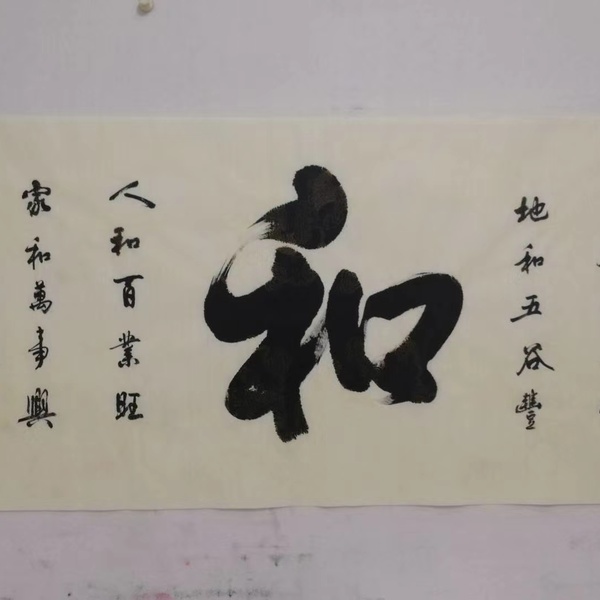 地和五谷豐
和
人和百業旺
家和萬事興